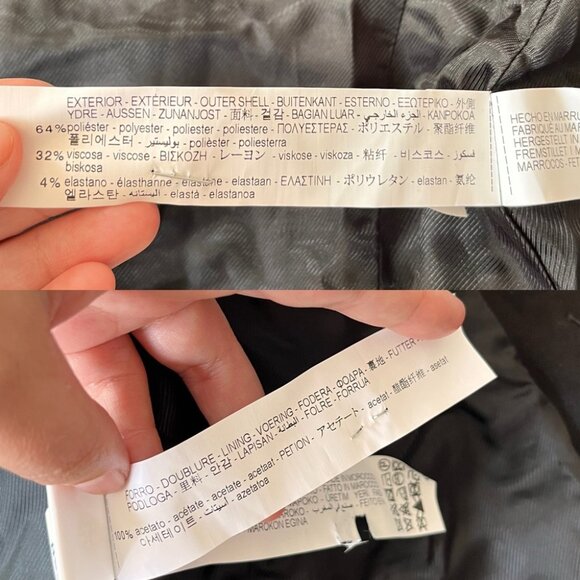 EXTERIOR - EXTÉRIEUR - OUTER SHELL - BUITENKANT - ESTERNO - ΕΞΩΤΕΡΙΚΟ - 外側
YDRE - AUSSEN - ZUNANJOST - 面料 - 겉감 - BAGIAN LUAR - الجزء الخارجي - KANPOKOA
64% poliéster - polyester - poliester - poliestere - ΠΟΛΥΕΣΤΕΡΑΣ - ポリエステル - 聚酯纤维
폴리에스터 - بوليستير - polièster - poliesterra
32% viscosa - viscose - ΒΙΣΚΟΖΗ - レーヨン - viskose - viskoza - 粘纤 - 비스코스 - فسكوز
biskosa
4% elastano - élasthanne - elastane - elastaan - ΕΛΑΣΤΙΝΗ - ポリウレタン - elastan - 氨纶
엘라스탄 - الاستانه - elastà - elastanoa
HECHO EN MARRU
FABRIQUÉ AU MAR
HERGESTELLT IN
FREMSTILLET I M
MARROCOS - FEI
FORRO - DOUBLURE - LINING - VOERING - FODERA - ΦΟΔΡΑ - 裏地 - FUTTER -
PODLOGA - 里料 - 안감 - LAPISAN - البطانة - FOLRE - FORRUA
100% acetato - acétate - acetate - acetaat - ΡΕΓΙΟΝ - アセテート - acetat - 醋酯纤维 - asetat
아세테이트 - أسيتات - azetatoa
FATTO IN MAROC
MAROKON EGINA